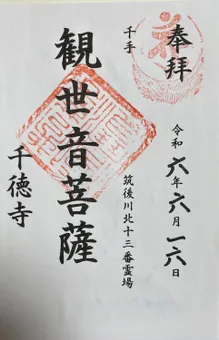 奉拝
令和六年六月一六日
筑後川北十三番霊場
千手
観世音菩薩
千徳寺